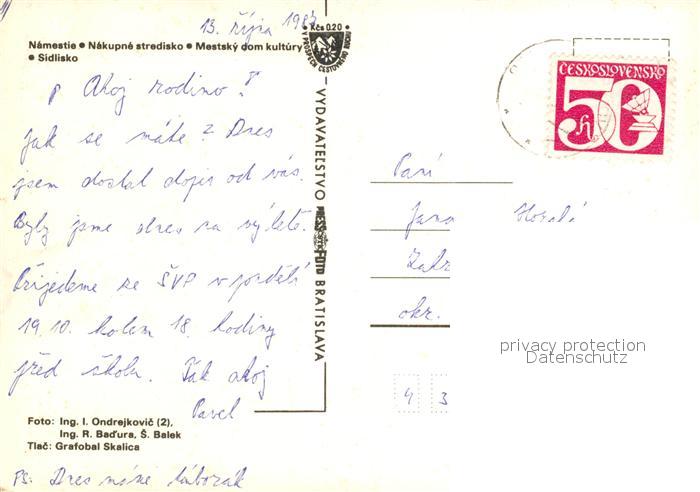 13. října 1987
Kčs 0.20
V PROSPECH CESTOVNÉHO RUCHU
Námestie ● Nákupné stredisko ● Mestský dom kultúry
● Sídlisko
Ahoj rodino!
Jak se máte? Dnes
jsem dostal dopis od vás.
Byly jsme dnes na výletě.
Přijedeme ze ŠVP v pondělí
19.10. kolem 18. hodiny
před školu. Tak ahoj
Pavel
Foto: Ing. I. Ondrejkovič (2),
Ing. R. Baďura, Š. Balek
Tlač: Grafobal Skalica
PS: Dnes máme táborák
VYDAVATEĽSTVO PRESSFOTO BRATISLAVA
ČESKOSLOVENSKO
50 h
Paní
Jana
okr.
privacy protection
Datenschutz
4 3